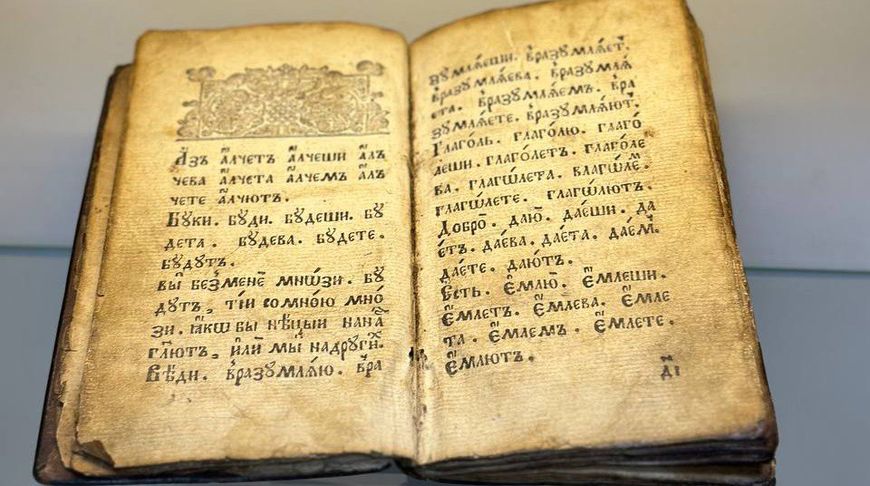 А҆́зъ а҆́лчетъ а҆́лчеши а҆́ль
чева а҆́лчета а҆́лчемъ а҆́ль
чете а҆́лчютъ.
Бꙋ́ки. бꙋ́ди. бꙋ́деши. бꙋ́
дета. бꙋ́дева. бꙋ́дете.
бꙋ́дутъ.
вы̀ без̾менѐ мнѡ́зи. бꙋ́
дутъ, ті́и со мно́ю мно́
зи. ꙗ҆́кѡ вы̀ нѣ́цыи на на̀
гл҃ютъ, и҆лѝ мы̀ на други̑х.
Вѣ́ди. вразумлѧ́ю. вра
зꙋмлѧ́еши. вразꙋмлѧ́ет.
вразꙋмлѧ́ева. вразꙋмлѧ́
ета. вразꙋмлѧ́емъ. вра
зꙋмлѧ́ете. вразꙋмлѧ́ют.
Глаго́ль. глаго́лю. глаго́
леши. глаго́летъ. глаго́ле
ва. глаго́лета. глаго́лем.
глаго́лете. глаго́лютъ.
Добро̀. даю̀. дае́ши. да
е́тъ. дае́ва. дае́та. дае́м.
дае́те. даю́тъ.
Є҆́сть. є҆́млю. є҆́млеши.
є҆́млетъ. є҆́млева. є҆́мле
та. є҆́млемъ. є҆́млете.
є҆́млютъ.
д҃і